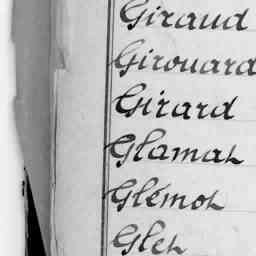 Giraud
Girouard
Girard
Glamat
Glémot
Glet